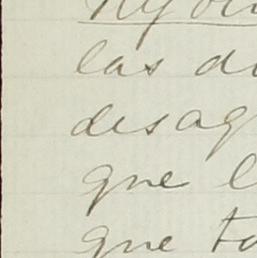 las di
desag
que l
que to